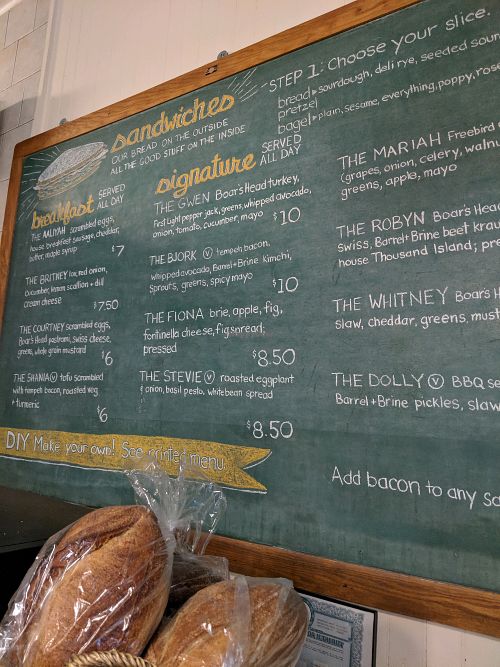 sandwiches
OUR BREAD ON THE OUTSIDE
ALL THE GOOD STUFF ON THE INSIDE
breakfast SERVED
ALL DAY
THE AALIYAH scrambled eggs,
house breakfast sausage, cheddar,
butter, maple syrup
$7
THE BRITNEY lox, red onion,
cucumber, lemon scallion + dill
cream cheese
$7.50
THE COURTNEY scrambled eggs,
Boar's Head pastrami, swiss cheese,
greens, whole grain mustard
$6
THE SHANIA Ⓥ tofu scrambled
with tempeh bacon, roasted veg
+ turmeric
$6
signature SERVED
ALL DAY
THE GWEN Boar's Head turkey,
First Light pepper jack, greens, whipped avocado,
onion, tomato, cucumber, mayo $10
THE BJORK Ⓥ tempeh bacon,
whipped avocado, Barrel+Brine kimchi,
sprouts, greens, spicy mayo
$10
THE FIONA brie, apple, fig,
fontinella cheese, fig spread;
pressed
$8.50
THE STEVIE Ⓥ roasted eggplant
+ onion, basil pesto, white bean spread
$8.50
STEP 1: Choose your slice.
bread sourdough, deli rye, seeded sour
pretzel
bagel plain, sesame, everything, poppy, rose
THE MARIAH Freebird
(grapes, onion, celery, walnu
greens, apple, mayo
THE ROBYN Boar's Hea
swiss, Barrel+Brine beet krau
house Thousand Island; pre
THE WHITNEY Boar's H
slaw, cheddar, greens, must
THE DOLLY Ⓥ BBQ se
Barrel+Brine pickles, slaw
Add bacon to any sa
DIY Make your own! See printed menu.